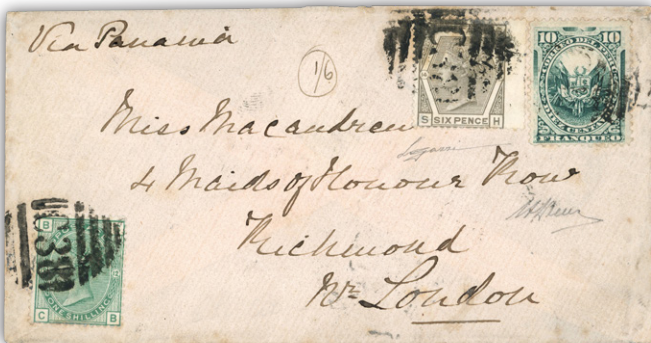 Via Panama
1/6
S SIX PENCE H
10 CORREO DEL PERU 10
DIEZ CENT
FRANQUEO
Miss Macandrew
4 Maids of Honour Row
Richmond
Nr London
B
C38
ONE SHILLING
C B